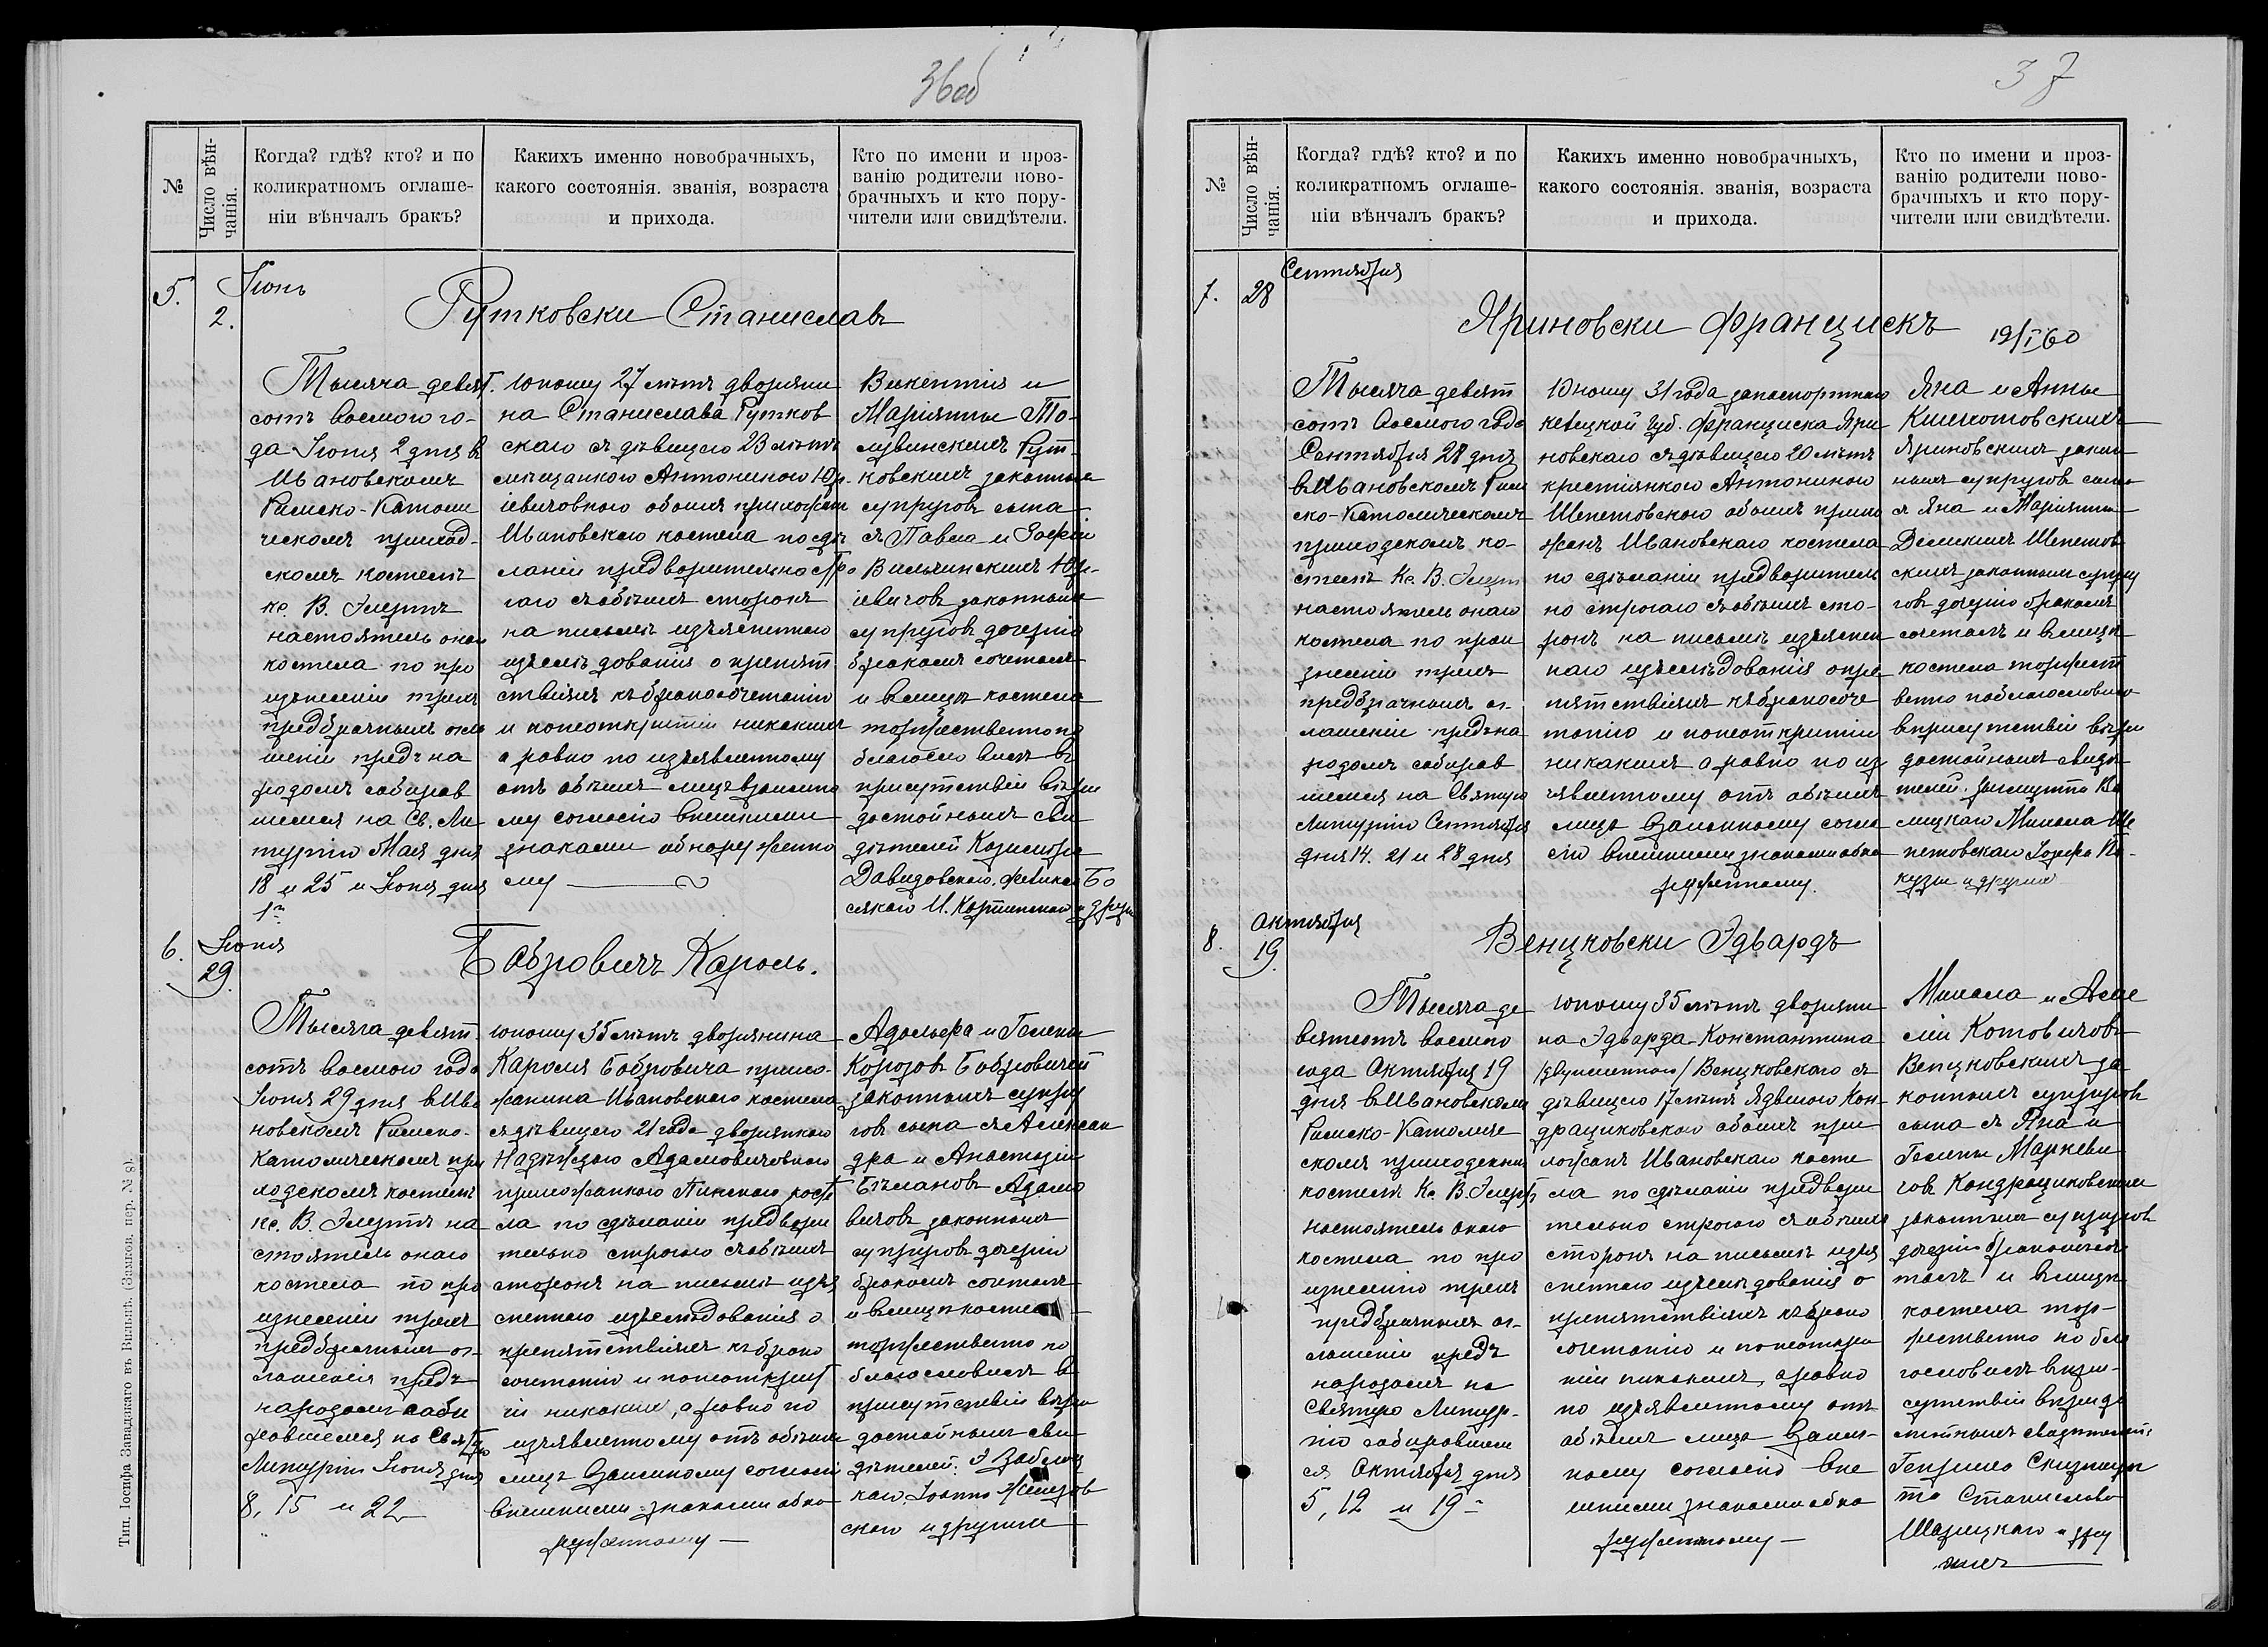 36об
№
Число вѣн-
чанія.
Когда? гдѣ? кто? и по
коликратномъ оглаше-
ніи вѣнчалъ бракъ?
Какихъ именно новобрачныхъ,
какого состоянія. званія, возраста
и прихода.
Кто по имени и проз-
ванію родители ново-
брачныхъ и кто пору-
чители или свидѣтели.
5.
Іюнь
2.
Рутковски Станиславъ
Тысяча девят.
сотъ восмого го-
да Іюня 2 дня въ
Ивановскомъ
Римско-Католи
ческомъ приход-
скомъ костелѣ
кс. В. Элертъ
настоятель онаго
костела по про
изънесеніи трехъ
предбрачныхъ огла
шеніи предъ на
родомъ собирав
шемся на Св. Ли
тургію Мая дня
18 и 25 и Іюня дня
1го
юношу 27 лѣтъ дворяни
на Станислава Рутков
скаго съ дѣвицею 23 лѣтъ
мѣщанкою Антониною Юр-
іевичовною обоихъ прихожан
Ивановскаго костела по сдѣ
ланіи предворительно стро
гаго съ обѣихъ сторонъ
на письмѣ изъясненного
изъслѣдованія о препят
ствіяхъ къ бракосочетанію
и по неоткрытіи никакихъ
а равно по изъявленному
отъ обѣихъ лицъ взаимно
му согласію внешними
знаками обнаруженно
му
Викентія и
Маріянны То-
лувинскихъ Рут-
ковскихъ законныхъ
супруговъ сына
съ Павла и Зофіи
Вильчинскихъ Юр-
іевичовъ законныхъ
супруговъ дочерію
бракомъ сочеталъ
и вълицѣ костела
торжественно по
благословилъ въ
присутствіи вѣры
достойныхъ сви
дѣтелей Козимира
Давидовскаго, Феликса Бо
сякаго И. и друг
6.
Іюня
29.
Бобровичъ Кароль.
Тысяча девят.
сотъ восмого года
Іюня 29 дня въ Ива
новскомъ Римско-
Католическомъ при
ходскомъ костелѣ
кс. В. Элертъ на
стоятель онаго
костела по про
изнесеніи трехъ
предбрачныхъ ог-
лашенія предъ
народомъ соби
равшемся на Святую
Литургію Іюня дня
8, 15 и 22
юношу 35 лѣтъ дворянина
Кароля Бобровича прихо-
жанина Ивановскаго костела
съ дѣвицею 21 года дворянкою
Надѣждою Адамовичовною
прихожанкою Пинскаго косте
ла по сдѣланіи предвори
тельно строгаго съ обѣихъ
сторонъ на письмѣ изъя
сненнаго изъслѣдованія о
препятствіяхъ къ брако
сочетанію и по неоткрыт
іи никакихъ, а равно по
изъявленному отъ обѣихъ
лицъ взаимному согласію
внешними знаками обна
руженному
Адольфа и Гелены
Корозовъ Бобровичей
законныхъ супру
говъ сына съ Алексан
дра и Анастазіи
Бѣлановъ Адамо
вичовъ законныхъ
супруговъ дочерію
бракомъ сочеталъ
и вълицѣ костела
торжественно по
благословилъ въ
присутствіи вѣры
достойныхъ сви
дѣтелей:
и другими
Тип. Іосифа Завадзкаго въ Вильнѣ. (Замков. пер. № 8).
37
№
Число вѣн-
чанія.
Когда? гдѣ? кто? и по
коликратномъ оглаше-
ніи вѣнчалъ бракъ?
Какихъ именно новобрачныхъ,
какого состоянія. званія, возраста
и прихода.
Кто по имени и проз-
ванію родители ново-
брачныхъ и кто пору-
чители или свидѣтели.
7.
28
Сентября
Яриновски Францискъ
19/I 60
Тысяча девят
сотъ восмого года
Сентября 28 дня
въ Ивановскомъ Рим
ско-Католическомъ
приходскомъ ко-
стелѣ Кс. В. Элертъ
настоятель онаго
костела по прои
знесеніи трехъ
предбрачныхъ ог-
лашеніи предъ на
родомъ собирав
шемся на Святую
Литургію Сентября
дня 14. 21 и 28 дня
Юношу 31 года запаспортнаго
Келецкой губ. Франциска Яри
новскаго съ дѣвицею 20 лѣтъ
крестіянкою Антониною
Шепетовскою обоихъ прихо
жанъ Ивановскаго костела
по сдѣланіи предворитель
но строгаго съ обѣихъ сто-
ронъ на письмѣ изъяснен
наго изъслѣдованія о пре
пятствіяхъ къ бракосоче
танію и по неоткрытіи
никакихъ а равно по из
ъявленному отъ обѣихъ
лицъ взаимному согла
сію внешними знаками обна
руженному.
Яна и Анны
Яриновскихъ закон
ныхъ супруговъ сына
съ Яна и Маріянны
Шепетов
скихъ законныхъ супру
говъ дочерію бракомъ
сочеталъ и вълицѣ
костела торжест
венно поблагословилъ
въ присутствіи вѣры
достойныхъ свидѣ
телей:
Михала Ше
петовскаго Іозефа
и другихъ
8.
Октября
19.
Венцковски Эдвардъ
Тысяча де
вятсотъ восмого
года Октября 19
дня въ Ивановскомъ
Римско-Католиче
скомъ приходскомъ
костелѣ Кс. В. Элертъ
настоятель онаго
костела по про
изнесеніи трехъ
предбрачныхъ ог-
лашеніи предъ
народомъ на
Святую Литург-
ію собиравшем
ся Октября дня
5, 12 и 19
юношу 35 лѣтъ дворяни
на Эдварда-Константина
/двуименного/ Венцковского съ
дѣвицею 17 лѣтъ Ядвигою Кон-
драциковскою обоихъ при
хожанъ Ивановскаго косте
ла по сдѣланіи предвори
тельно строгого съ обѣихъ
сторонъ на письмѣ изъя
сненнаго изъслѣдованія о
препятствіяхъ къ брако
сочетанію и по неоткры
тіи никакихъ, а равно
по изъявленному отъ
обѣихъ лицъ взаим-
ному согласію вне
шними знаками обна
руженному
Михала и Аме
ліи Котовичовъ
Венцковскихъ за
конныхъ супруговъ
сына съ Яна и
Гелены Маркеви
човъ Кондрациковскихъ
законныхъ супруговъ
дочерію бракомъ соче
талъ и вълицѣ
костела тор-
жественно по бла
гословилъ въ при-
сутствіи вѣры до
стойныхъ свидѣтелей:
Станислава
и дру
гихъ